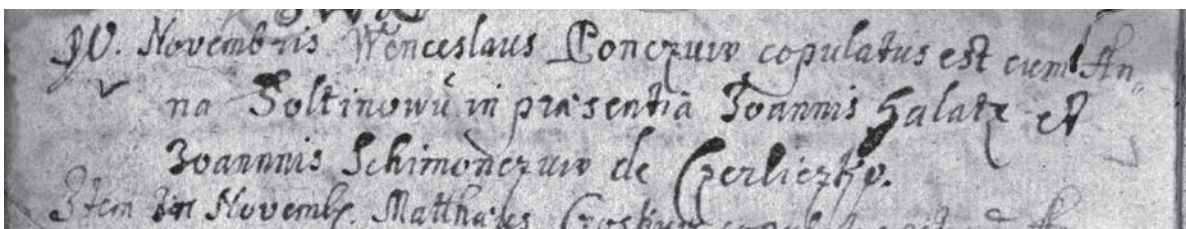 IV. Novembris Wenceslaus Ponczuw copulatus est cum An„
na Foltinowu in præsentia Joannis Halatx et
Joannnis Schimonczuw de Czerlieztko.
Item in Novemb. Matthæus copulat